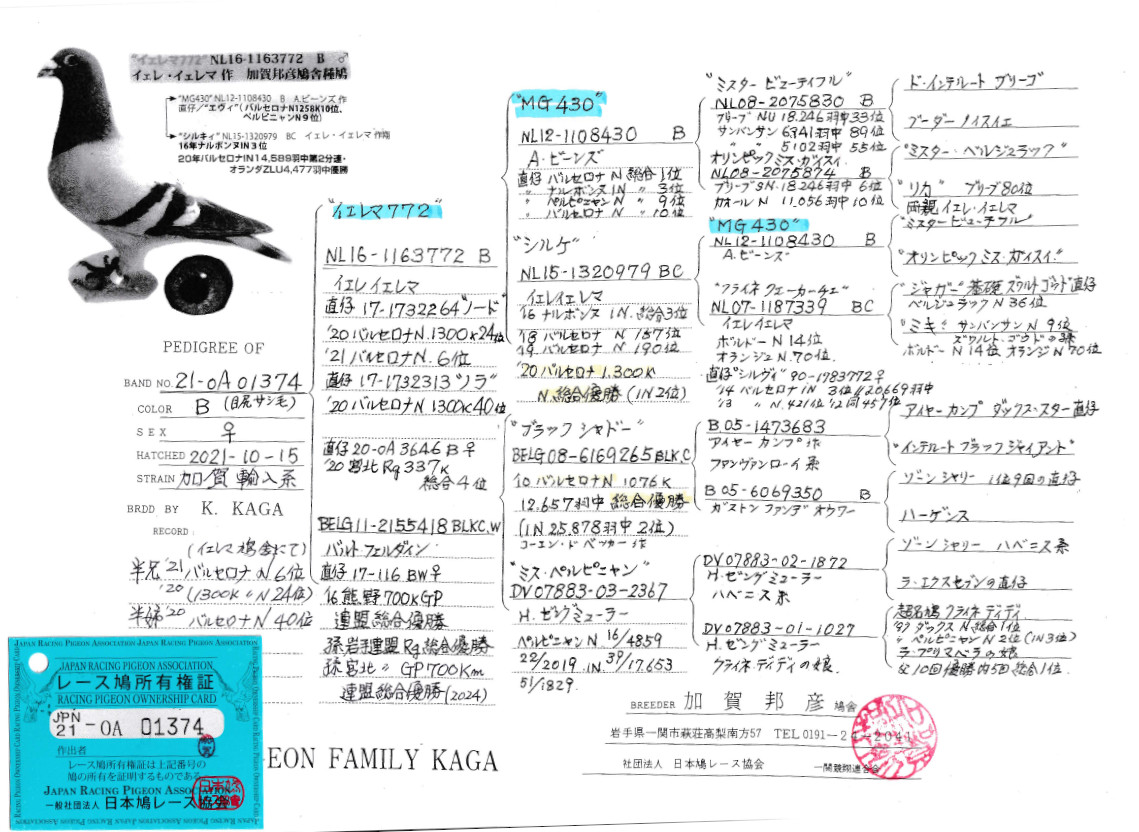 "イエレマ772" NL16-1163772 B ♂
イェレ・イェレマ 作 加賀邦彦鳩舎種鳩
"MG430" NL12-1108430 B A.ビーンズ 作
直仔/"エヴィ"(バルセロナN1258K10位、
ペルピニャンN9位)
"シルキィ" NL15-1320979 BC イェレ・イェレマ作翔
16年ナルボンヌIN3位
20年バルセロナIN14,589羽中第2分速・
オランダZLU4,477羽中優勝
PEDIGREE OF
BAND NO. 21-0A01374
COLOR B (目尻サシ毛)
SEX ♀
HATCHED 2021-10-15
STRAIN 加賀輸入系
BRDD BY K. KAGA
RECORD:
(イエレマ鳩舎にて)
半兄'21 バルセロナN6位
'20 (1300K 〃 N24位)
半姉'20 バルセロナN40位
"イエレマ772"
NL16-1163772 B
イエレイエレマ
直仔 17-1732264 "ノード"
'20バルセロナN.1300K24位
'21バルセロナN.6位
直仔17-1732313 "ソラ"
'20バルセロナN1300K40位
直仔20-0A3646 B♀
'20宮北Rg 337K
総合4位
BELG11-2155418 BLKC.W
バルトフェルダイン
直仔17-116BW♀
'16熊野700KGP
連盟総合優勝
孫岩手連盟Rg総合優勝
孫宮北〃GP700Km
連盟総合優勝(2024)
"MG430"
NL12-1108430 B
A.ビーンズ
直仔 バルセロナN総合1位
〃 ナルボンヌIN 〃 3位
〃 ペルピニャンN 〃 9位
〃 バルセロナN 〃 10位
"シルケ"
NL15-1320979 BC
イエレイエレマ
'16ナルボンヌIN.総合3位
'18バルセロナN187位
'19バルセロナN190位
'20バルセロナ1.300K
N.総合優勝(IN2位)
"ブラックシャドー"
BELG08-6169265BLK.C
10バルセロナN1076K
12.657羽中総合優勝
(IN25.878羽中2位)
コーエン・ド・ベッカー作
"ミス・ペルピニャン"
DV07883-03-2367
H.ゼングミューラー
ペルピニャンN 16/4859
22/2019.IN.39/17.653
51/1829.
"ミスタービューティフル"
NL08-2075830 B
ブリーブNU18.246羽中33位
サンバンサン6941羽中89位
〃 〃 5102羽中55位
オリンピックミス・ガイスイ.
NL08-2075874 B
ブリーブSN.18.246羽中6位
カオールN11.056羽中10位
"MG430"
NL12-1108430 B
A.ビーンズ
"クライネクェーカーチェ"
NL07-1187339 BC
イエレイエレマ
ボルドーN14位
オランジュN.70位.
直仔"シルヴィ"90-1983772♀
'14バルセロナIN3位//20669羽中
'13 〃 N.421位'12同457位
B05-1473683
アイヤーカンプ作
ファンヴァンローイ系
B05-6069350 B
ガストンファンデオウワー
DV07883-02-1872
H.ゼングミューラー
ハベニス系
DV07883-01-1027
H.ゼングミューラー
クライネディディの娘
ド・インテルートブリーゴ
ブーダーノイスイエ
"ミスター・ベルジュラック"
"リカ" ブリーブ80位
両親イエレ・イエレマ
"ミスタービューチフル"
"オリンピックミス・ガイスイ."
"ジャガー"基礎ズワルトゴウド直仔
ベルジュラックN36位
"ミキ"サンバンサンN9位
ズワルト・ゴウドの孫
ボルドーN14位オランジN70位
アイヤーカンプダックス・スター直仔
"インテルートブラックジャイアント"
ゾーンシャリー1位9回の直仔
ハーゲンス
ゾーンシャリーハベニス系
ラ・エクスセブンの直仔
超名鳩クライネディディ
'97ダックスN総合1位
〃ペルピニャンN2位(IN3位)
ラ・プリマベラの娘
父10回優勝内5回総合1位.
JAPAN RACING PIGEON ASSOCIATION
レース鳩所有権証
RACING PIGEON OWNERSHIP CARD
JPN
21-OA 01374
作出者
レース鳩所有権証は上記番号の
鳩の所有を証明するものである
JAPAN RACING PIGEON ASSOCIATION
一般社団法人 日本鳩レース協会
EON FAMILY KAGA
BREEDER 加賀邦彦 鳩舎
岩手県一関市萩荘高梨南方57 TEL 0191-24-2041
社団法人 日本鳩レース協会 一関競翔連合会